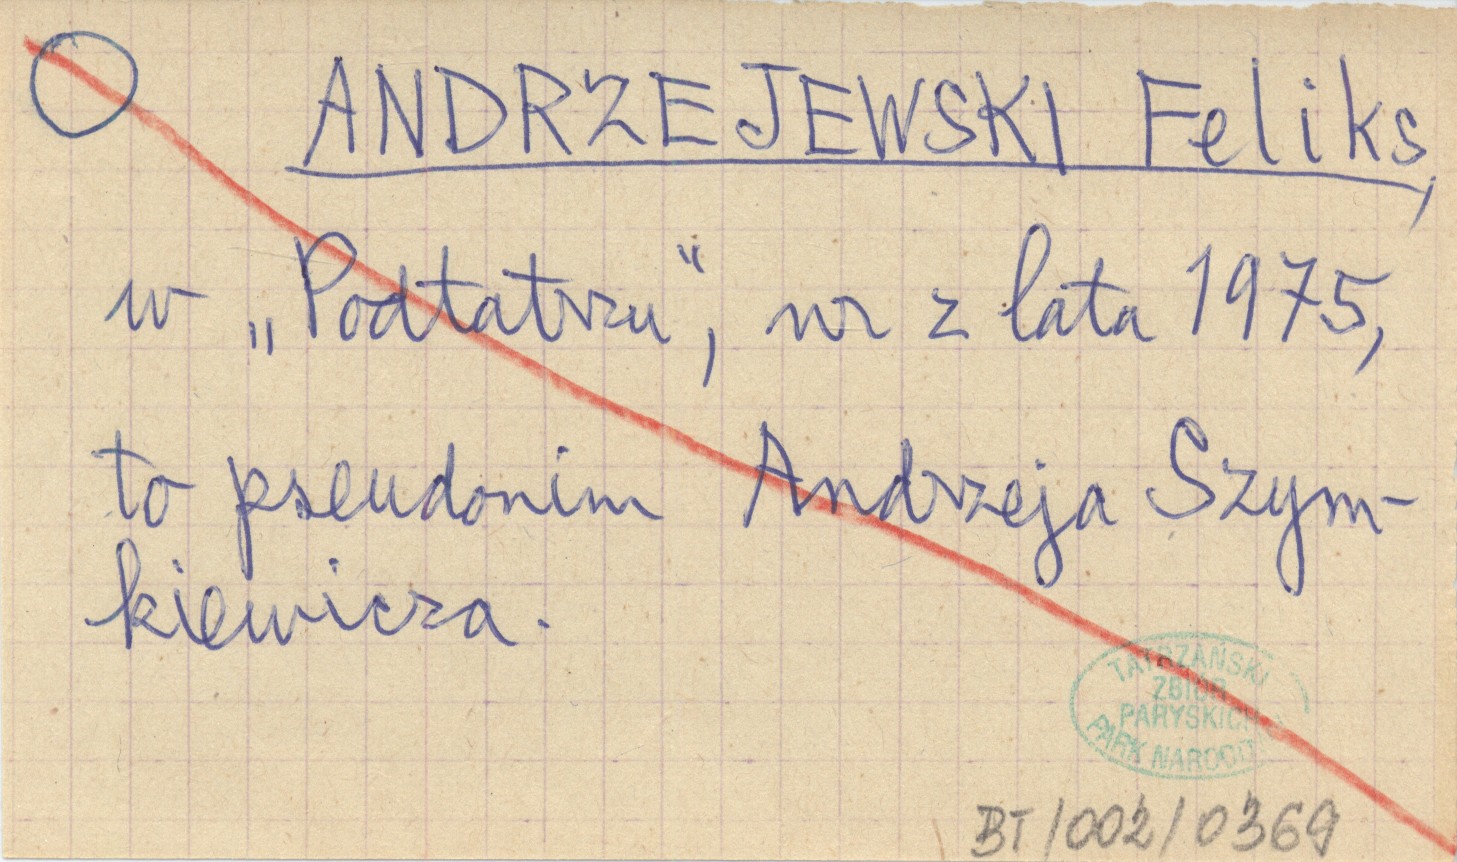 ANDRZEJEWSKI Feliks,
w „Podtatrzu”, nr z lata 1975,
to pseudonim Andrzeja Szym-
kiewicza.
TATRZAŃSKI
ZBIÓR
PARYSKICH
PARK NARODO
BT/002/0369